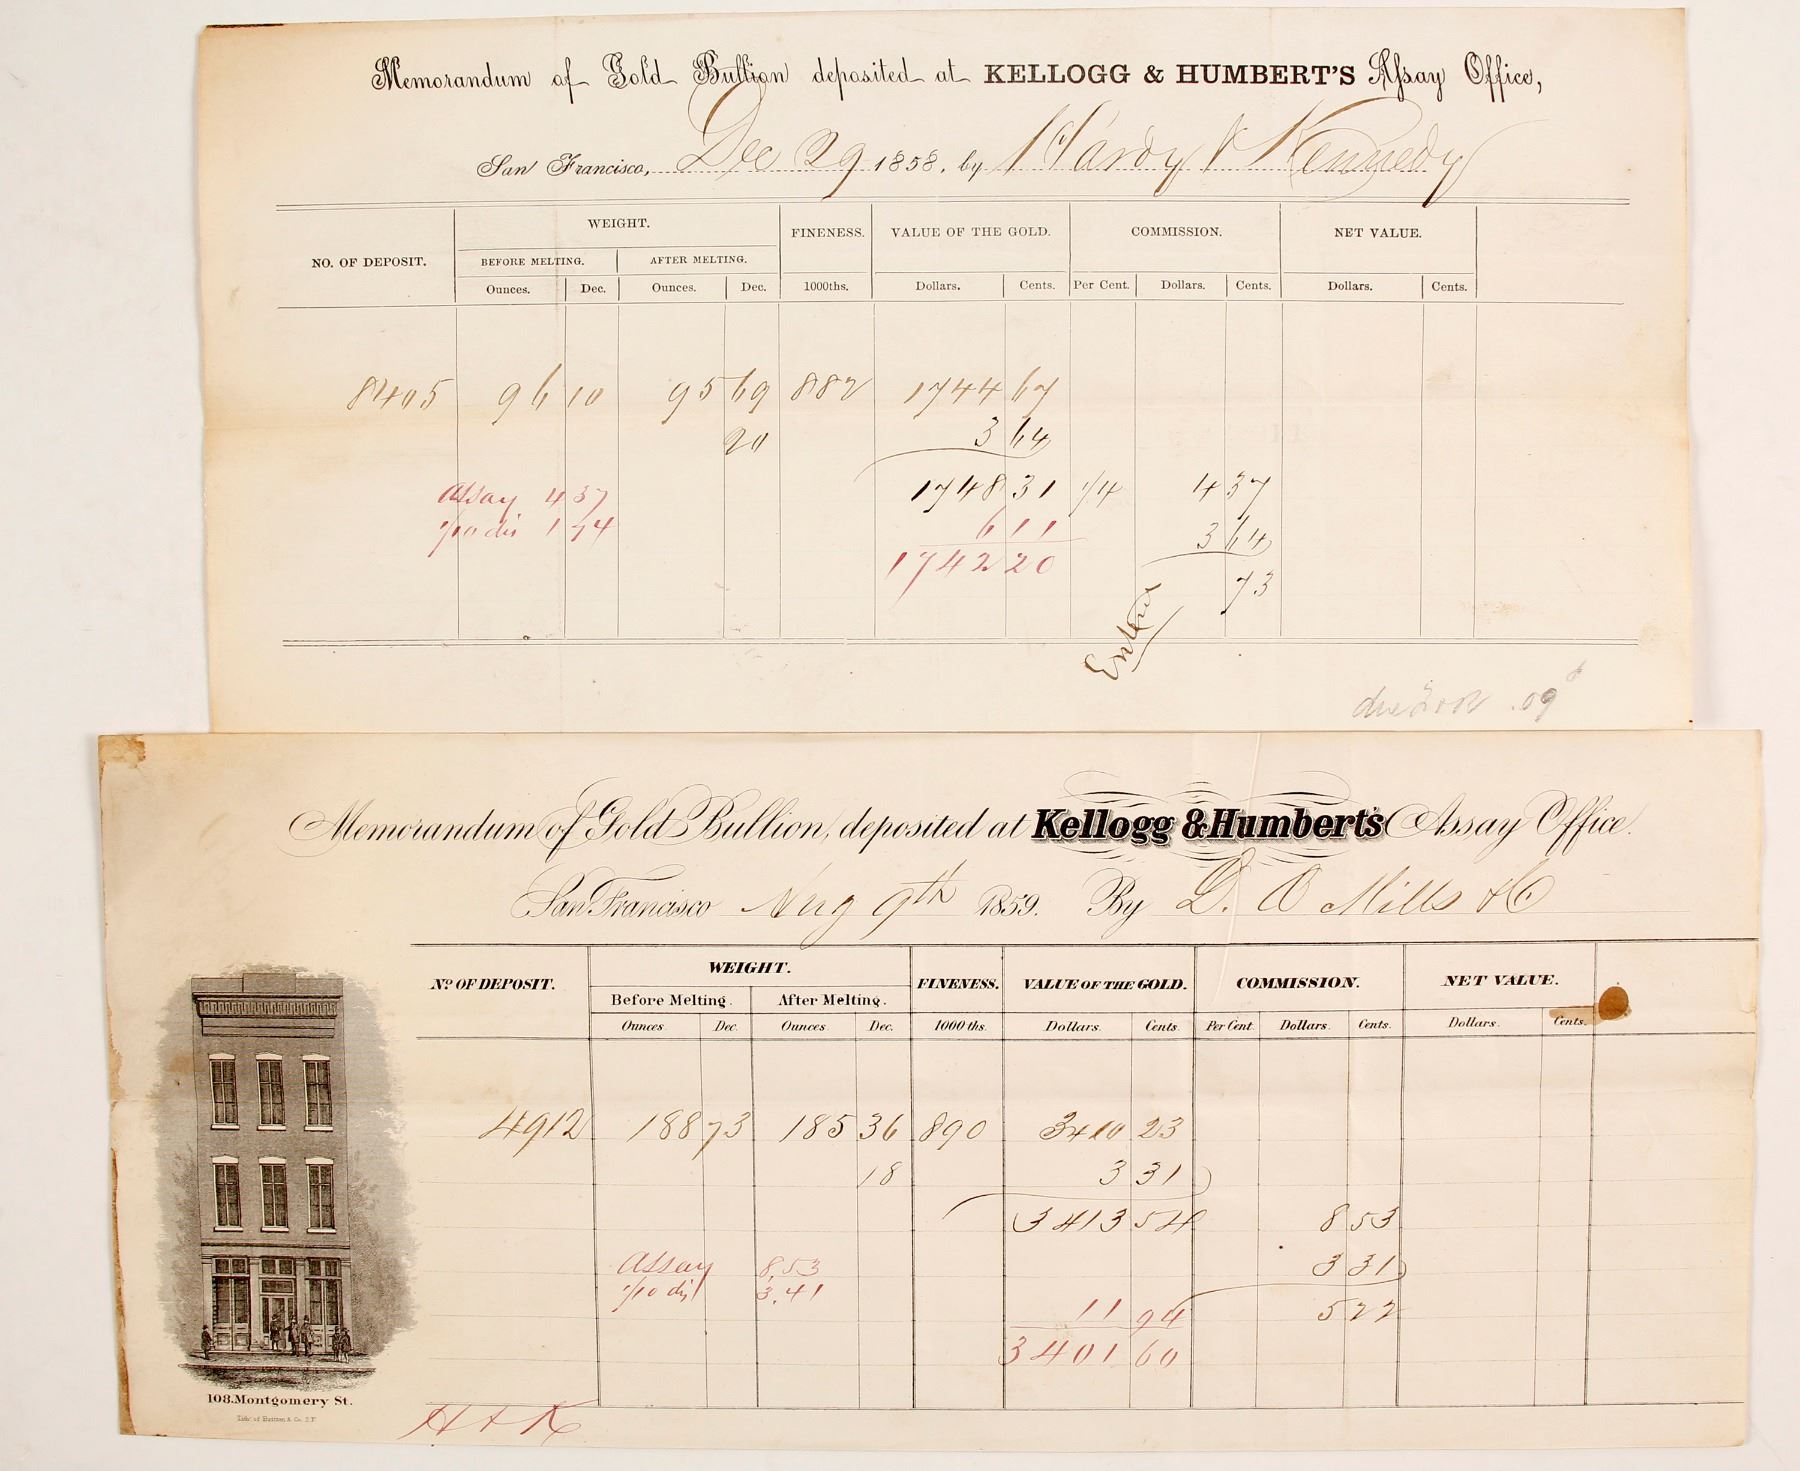 Memorandum of Gold Bullion deposited at KELLOGG & HUMBERT'S Assay Office,
San Francisco, Dec 29 1858, by Hardy & Kennedy
NO. OF DEPOSIT. WEIGHT. FINENESS. VALUE OF THE GOLD. COMMISSION. NET VALUE.
BEFORE MELTING. AFTER MELTING.
Ounces. Dec. Ounces. Dec. 1000ths. Dollars. Cents. Per Cent. Dollars. Cents. Dollars. Cents.
8405 96 10 95 69 882 1744 67
20 3 64
Assay 4 37 1748 31 1/4 4 37
1/10 dis 1 74 6 11 3 64
1742 20 73
Entered
.09
Memorandum of Gold Bullion, deposited at Kellogg & Humbert's Assay Office.
San Francisco Aug 9th 1859. By D. O Mills & Co
No. OF DEPOSIT. WEIGHT. FINENESS. VALUE OF THE GOLD. COMMISSION. NET VALUE.
Before Melting. After Melting.
Ounces Dec. Ounces Dec. 1000 ths. Dollars. Cents Per Cent. Dollars. Cents. Dollars. Cents.
4912 188 73 185 36 890 3410 23
18 3 31
3413 54 8 53
Assay 8,53 3 31
1/10 dis 3,41
11 94 5 22
3401 60
108. Montgomery St.
H & K